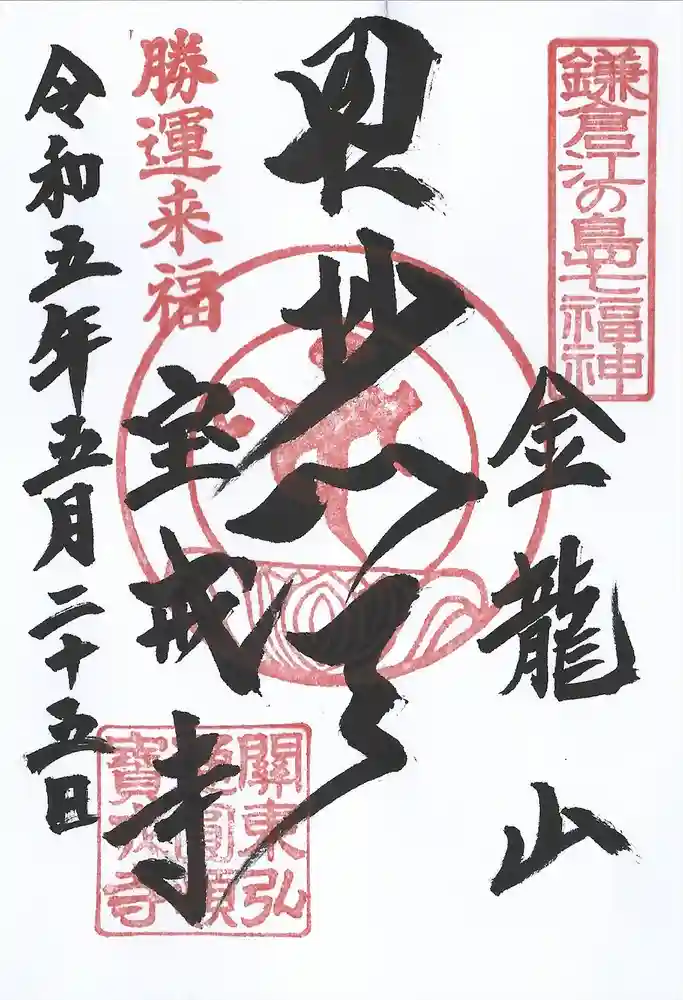 鎌倉江の島七福神
金龍山
毘沙門天
勝運来福
宝戒寺
令和五年五月二十五日
關東弘
通圓頓
寶戒寺